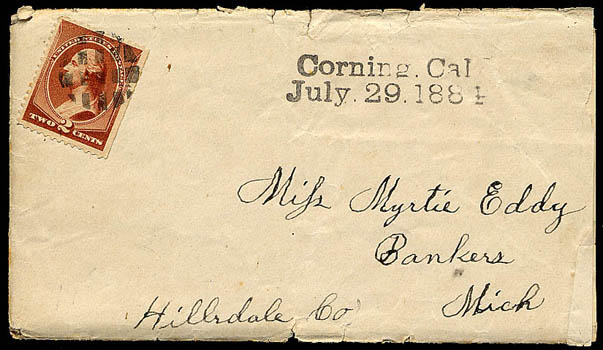 UNITED STATES POSTAGE
TWO 2 CENTS
Corning. Cal
July. 29. 1884
Miss Myrtie Eddy
Bankers
Mich
Hillsdale Co